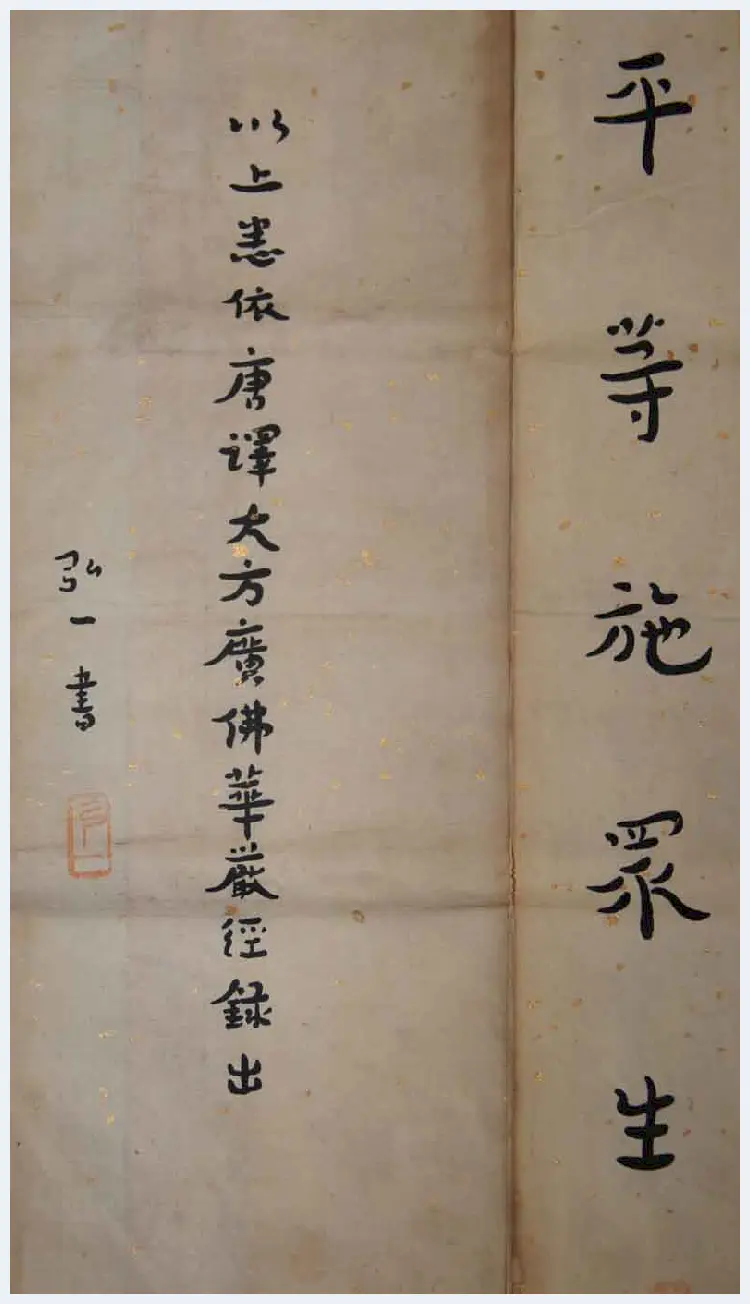 平等施眾生
以上悉依唐譯大方廣佛華嚴經録出
弘一書